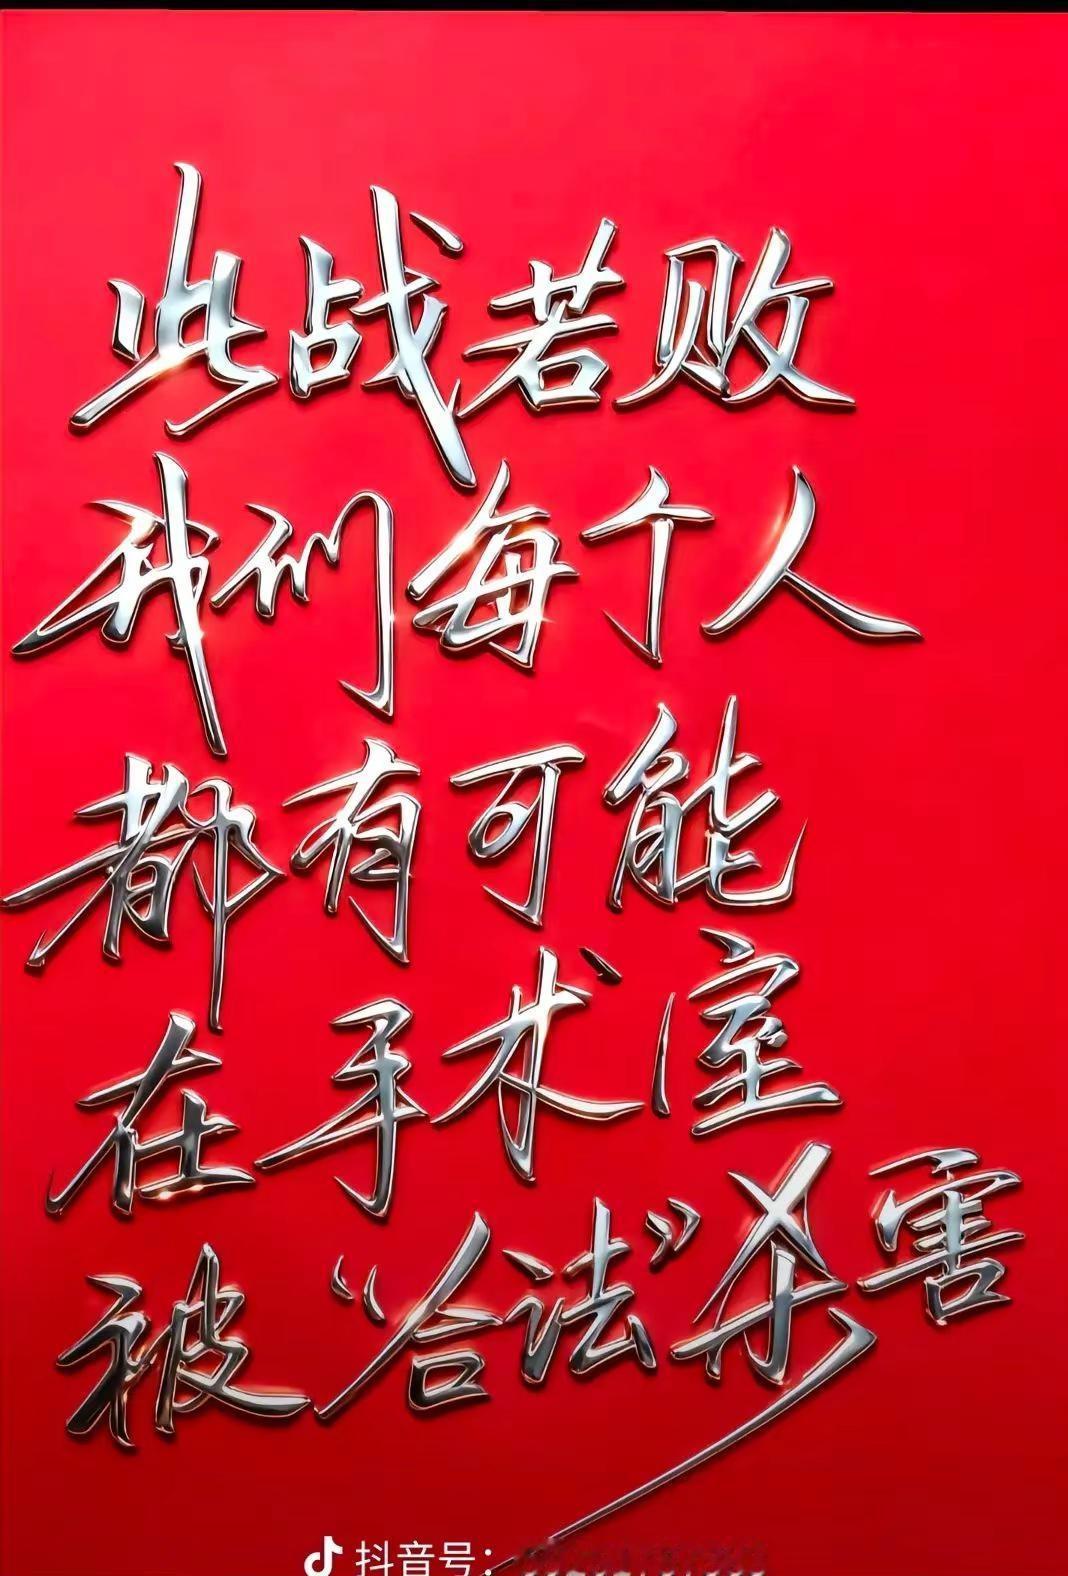 此战若败
我们每个人
都有可能
在手术室
被“合法”杀害
抖音号：